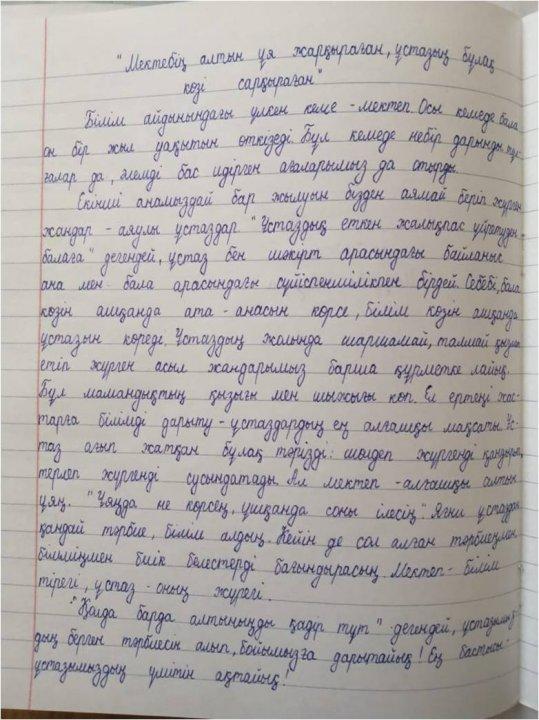 "Мектебің алтын ұя жарқыраған, ұстазың бұлақ
көзі сарқыраған"
Білім айдынындағы үлкен кеме - мектеп. Осы кемеде бала
он бір жыл уақытын өткізеді. Бұл кемеде небір дарынды тұл-
ғалар да, әлемді бас идірген ағаларымыз да отырды.
Екінші анамыздай бар жылуын бізден аямай беріп жүрген
жандар - аяулы ұстаздар "Ұстаздық еткен жалықпас үйретуден
балаға" дегендей, ұстаз бен шәкірт арасындағы байланыс
ана мен бала арасындағы сүйіспеншілікпен бірдей. Себебі, бала
көзін ашқанда ата - анасын көрсе, білім көзін ашқанда
ұстазын көреді. Ұстаздың жолында шаршамай, талмай қызмет
етіп жүрген асыл жандарымыз барша құрметке лайық.
Бұл мамандықтың қызығы мен шыжығы көп. Ел ертеңі жас-
тарға білімді дарыту - ұстаздардың ең алғашқы мақсаты. Ұс-
таз ағып жатқан бұлақ тәрізді: шөлдеп жүргенді қандырып,
терлеп жүргенді сусындатады. Ал мектеп - алғашқы алтын
ұяң. "Ұяңда не көрсең, ұшқанда соны ілесің" Яғни ұстаздан
қандай тәрбие, білім алдың. Кейін де сол алған тәрбиеңмен,
біліміңмен биік белестерді бағындырасың. Мектеп - білім
тірегі, ұстаз - оның жүрегі.
"Қолда барда алтыныңды қадір тұт" дегендей, ұстазымыз-
дың берген тәрбиесін алып, бойымызға дарытайық! Ең бастысы -
ұстазымыздың үмітін ақтайық!